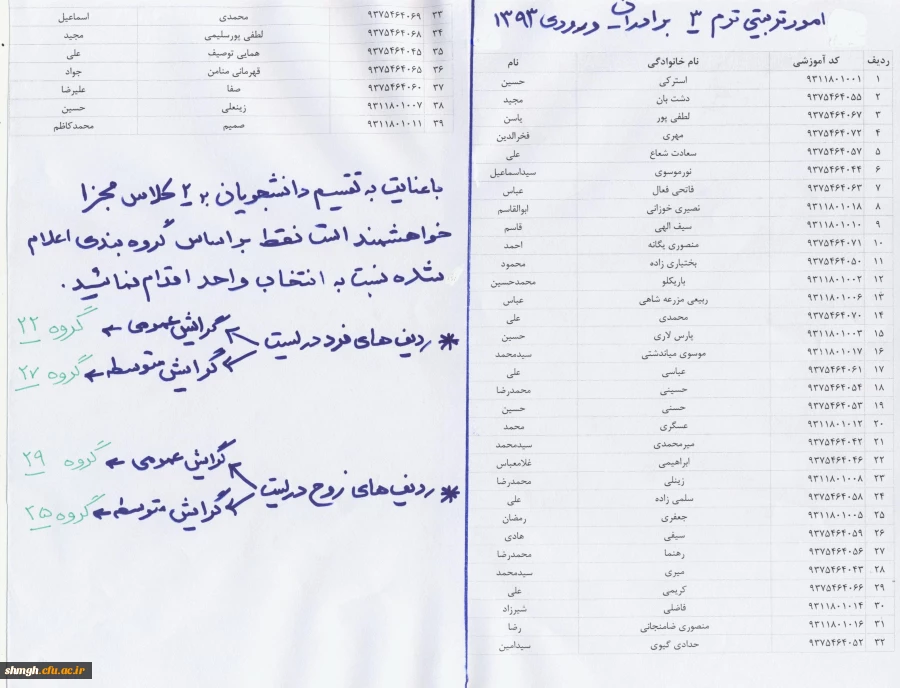 امور تربیتی ترم ۳ برادران ورودی ۱۳۹۳
ردیف کد آموزشی نام خانوادگی نام
۱ ۹۳۱۱۸۰۱۰۰۱ استرکی حسین
۲ ۹۳۷۵۴۶۴۰۵۵ دشت بان مجید
۳ ۹۳۷۵۴۶۴۰۶۷ لطفی پور یاسن
۴ ۹۳۷۵۴۶۴۰۷۲ مهری فخرالدین
۵ ۹۳۷۵۴۶۴۰۵۷ سعادت شعاع علی
۶ ۹۳۷۵۴۶۴۰۴۴ نورموسوی سیداسماعیل
۷ ۹۳۷۵۴۶۴۰۶۳ فاتحی فعال عباس
۸ ۹۳۱۱۸۰۱۰۱۸ نصیری خوزانی ابوالقاسم
۹ ۹۳۱۱۸۰۱۰۱۰ سیف الهی قاسم
۱۰ ۹۳۷۵۴۶۴۰۷۱ منصوری یگانه احمد
۱۱ ۹۳۷۵۴۶۴۰۵۰ بختیاری زاده محمود
۱۲ ۹۳۱۱۸۰۱۰۰۲ باریکلو محمدحسین
۱۳ ۹۳۱۱۸۰۱۰۰۶ ربیعی مزرعه شاهی عباس
۱۴ ۹۳۷۵۴۶۴۰۷۰ محمدی علی
۱۵ ۹۳۱۱۸۰۱۰۰۳ پارس لاری حسین
۱۶ ۹۳۱۱۸۰۱۰۱۷ موسوی میاندشتی سیدمحمد
۱۷ ۹۳۷۵۴۶۴۰۶۱ عباسی علی
۱۸ ۹۳۷۵۴۶۴۰۵۴ حسینی محمدرضا
۱۹ ۹۳۷۵۴۶۴۰۵۳ حسنی حسین
۲۰ ۹۳۱۱۸۰۱۰۱۲ عسگری محمد
۲۱ ۹۳۷۵۴۶۴۰۴۲ میرمحمدی سیدمحمد
۲۲ ۹۳۷۵۴۶۴۰۴۶ ابراهیمی غلامعباس
۲۳ ۹۳۱۱۸۰۱۰۰۸ زینلی محمدرضا
۲۴ ۹۳۷۵۴۶۴۰۵۸ سلمی زاده علی
۲۵ ۹۳۱۱۸۰۱۰۰۵ جعفری رمضان
۲۶ ۹۳۷۵۴۶۴۰۵۹ سیفی هادی
۲۷ ۹۳۷۵۴۶۴۰۵۶ رهنما محمدرضا
۲۸ ۹۳۷۵۴۶۴۰۴۳ میری سیدمحمد
۲۹ ۹۳۷۵۴۶۴۰۶۶ کریمی علی
۳۰ ۹۳۱۱۸۰۱۰۱۴ فاضلی شیرزاد
۳۱ ۹۳۱۱۸۰۱۰۱۶ منصوری ضامنجانی رضا
۳۲ ۹۳۷۵۴۶۴۰۵۲ حدادی گیوی سیدامین
۳۳ ۹۳۷۵۴۶۴۰۶۹ محمدی اسماعیل
۳۴ ۹۳۷۵۴۶۴۰۶۸ لطفی پورسلیمی مجید
۳۵ ۹۳۷۵۴۶۴۰۴۵ همایی توصیف علی
۳۶ ۹۳۷۵۴۶۴۰۶۵ قهرمانی منامن جواد
۳۷ ۹۳۷۵۴۶۴۰۶۰ صفا علیرضا
۳۸ ۹۳۱۱۸۰۱۰۰۷ زینعلی حسین
۳۹ ۹۳۱۱۸۰۱۰۱۱ صمیم محمدکاظم
باعنایت به تقسیم دانشجویان به ۲ کلاس مجزا
خواهشمند است فقط براساس گروه بندی اعلام
شده نسبت به انتخاب واحد اقدام نمائید.
* ردیف های فرد در لیست
گرایش عمومی گروه ۲۲
گرایش متوسطه گروه ۲۷
* ردیف های زوج در لیست
گرایش عمومی گروه ۲۹
گرایش متوسطه گروه ۲۵
shmgh.cfu.ac.ir